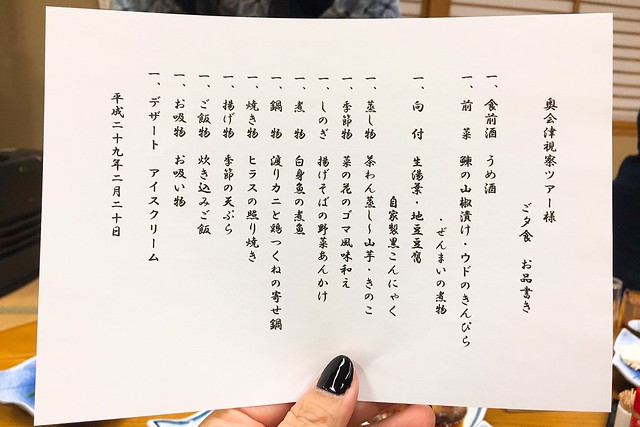 奥会津視察ツアー様
ご夕食　お品書き
一、食前酒　うめ酒
一、前　菜　鰊の山椒漬け・ウドのきんぴら
・ぜんまいの煮物
一、向　付　生湯葉・地豆豆腐
自家製黒こんにゃく
一、蒸し物　茶わん蒸し～山芋・きのこ
一、季節物　菜の花のゴマ風味和え
一、しのぎ　揚げそばの野菜あんかけ
一、煮　物　白身魚の煮魚
一、鍋　物　渡りカニと鶏つくねの寄せ鍋
一、焼き物　ヒラスの照り焼き
一、揚げ物　季節の天ぷら
一、ご飯物　炊き込みご飯
一、お吸物　お吸い物
一、デザート　アイスクリーム
平成二十九年二月二十日